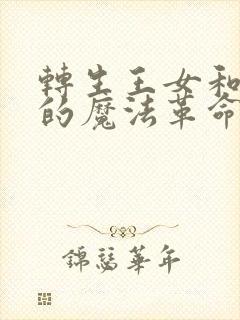 轉生王女和
的魔法革命
錦瑟華年